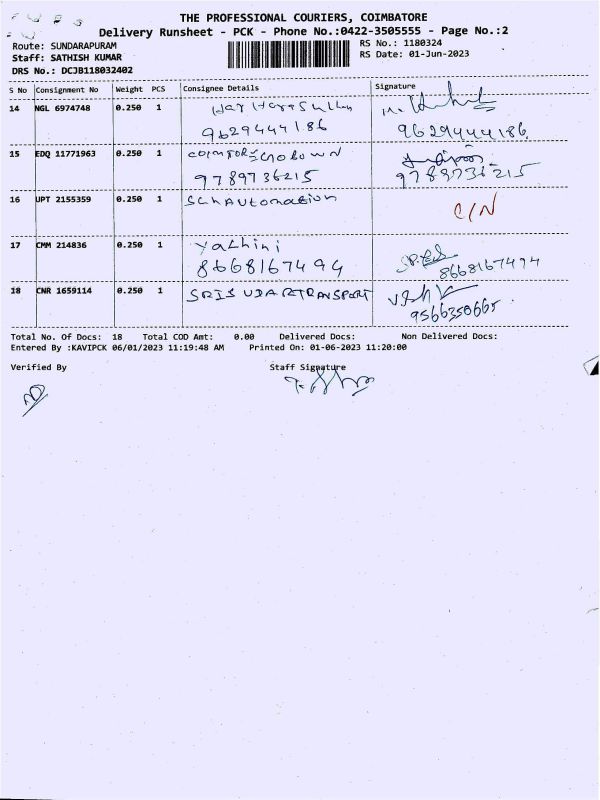 THE PROFESSIONAL COURIERS, COIMBATORE
Delivery Runsheet - PCK - Phone No.:0422-3505555 - Page No.:2
Route: SUNDARAPURAM
RS No.: 1180324
Staff: SATHISH KUMAR
RS Date: 01-Jun-2023
DRS No.: DCJB118032402
S No Consignment No Weight PCS Consignee Details Signature
14 NGL 6974748 0.250 1
9629444186 9629444186
15 EDQ 11771963 0.250 1
9789736215 9789736215
16 UPT 2155359 0.250 1 Automation C/N
17 CMM 214836 0.250 1 Yazhini
8668167494 8668167494
18 CNR 1659114 0.250 1 TRANSPORT
9566350665
Total No. Of Docs: 18 Total COD Amt: 0.00 Delivered Docs: Non Delivered Docs:
Entered By :KAVIPCK 06/01/2023 11:19:48 AM Printed On: 01-06-2023 11:20:00
Verified By Staff Signature